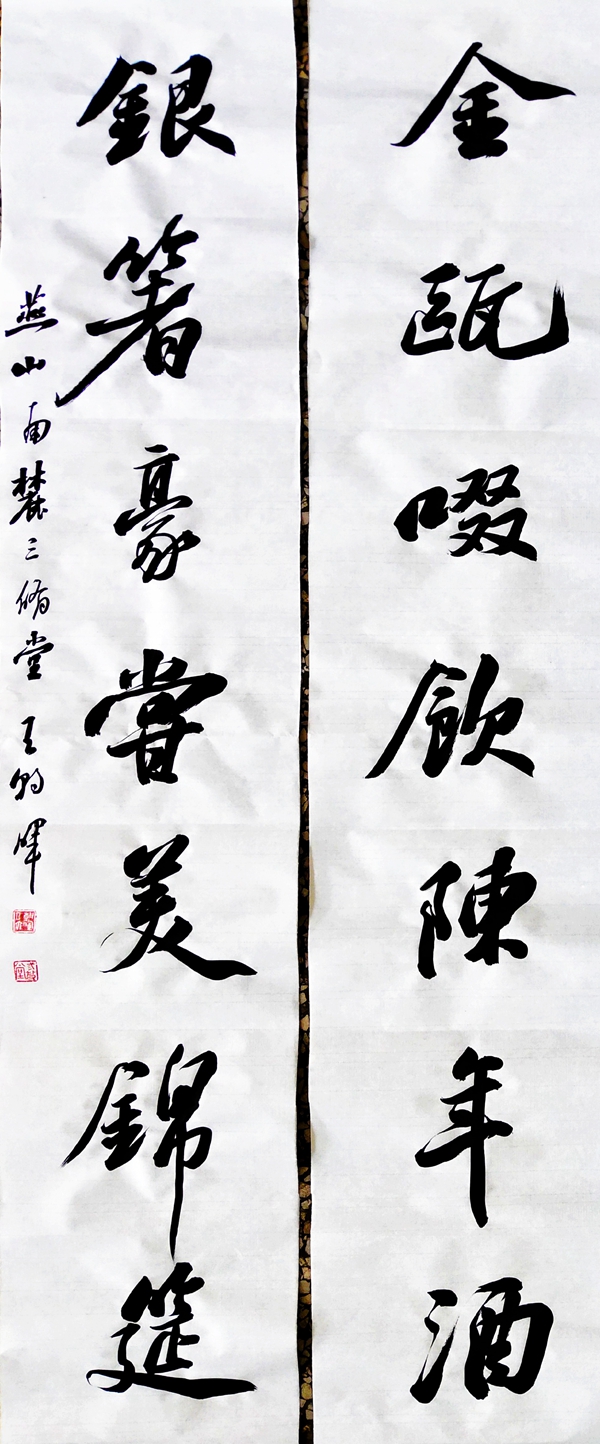 金甌啜飲陳年酒
銀箸豪嘗美錦筵
燕山南麓三脩堂王朝暉